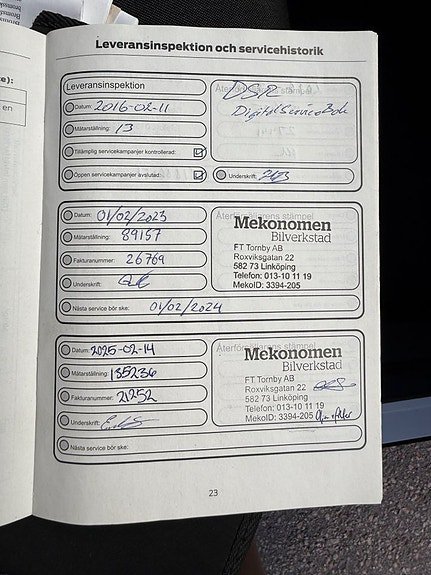 Leveransinspektion och servicehistorik
Leveransinspektion
Datum: 2016-02-11
Mätarställning: 13
Tillämplig servicekampanjer kontrollerad:
Öppen servicekampanjer avslutad:
DSR
Digital Service Bok
Underskrift:
Datum: 01/02/2023
Mätarställning: 89157
Fakturanummer: 26769
Underskrift:
Nästa service bör ske: 01/02/2024
Återförsäljarens stämpel
Mekonomen
Bilverkstad
FT Tornby AB
Roxviksgatan 22
582 73 Linköping
Telefon: 013-10 11 19
MekoID: 3394-205
Datum: 2025-02-14
Mätarställning: 135236
Fakturanummer: 21252
Underskrift:
Nästa service bör ske:
Återförsäljarens stämpel
Mekonomen
Bilverkstad
FT Tornby AB
Roxviksgatan 22
582 73 Linköping
Telefon: 013-10 11 19
MekoID: 3394-205
23
en